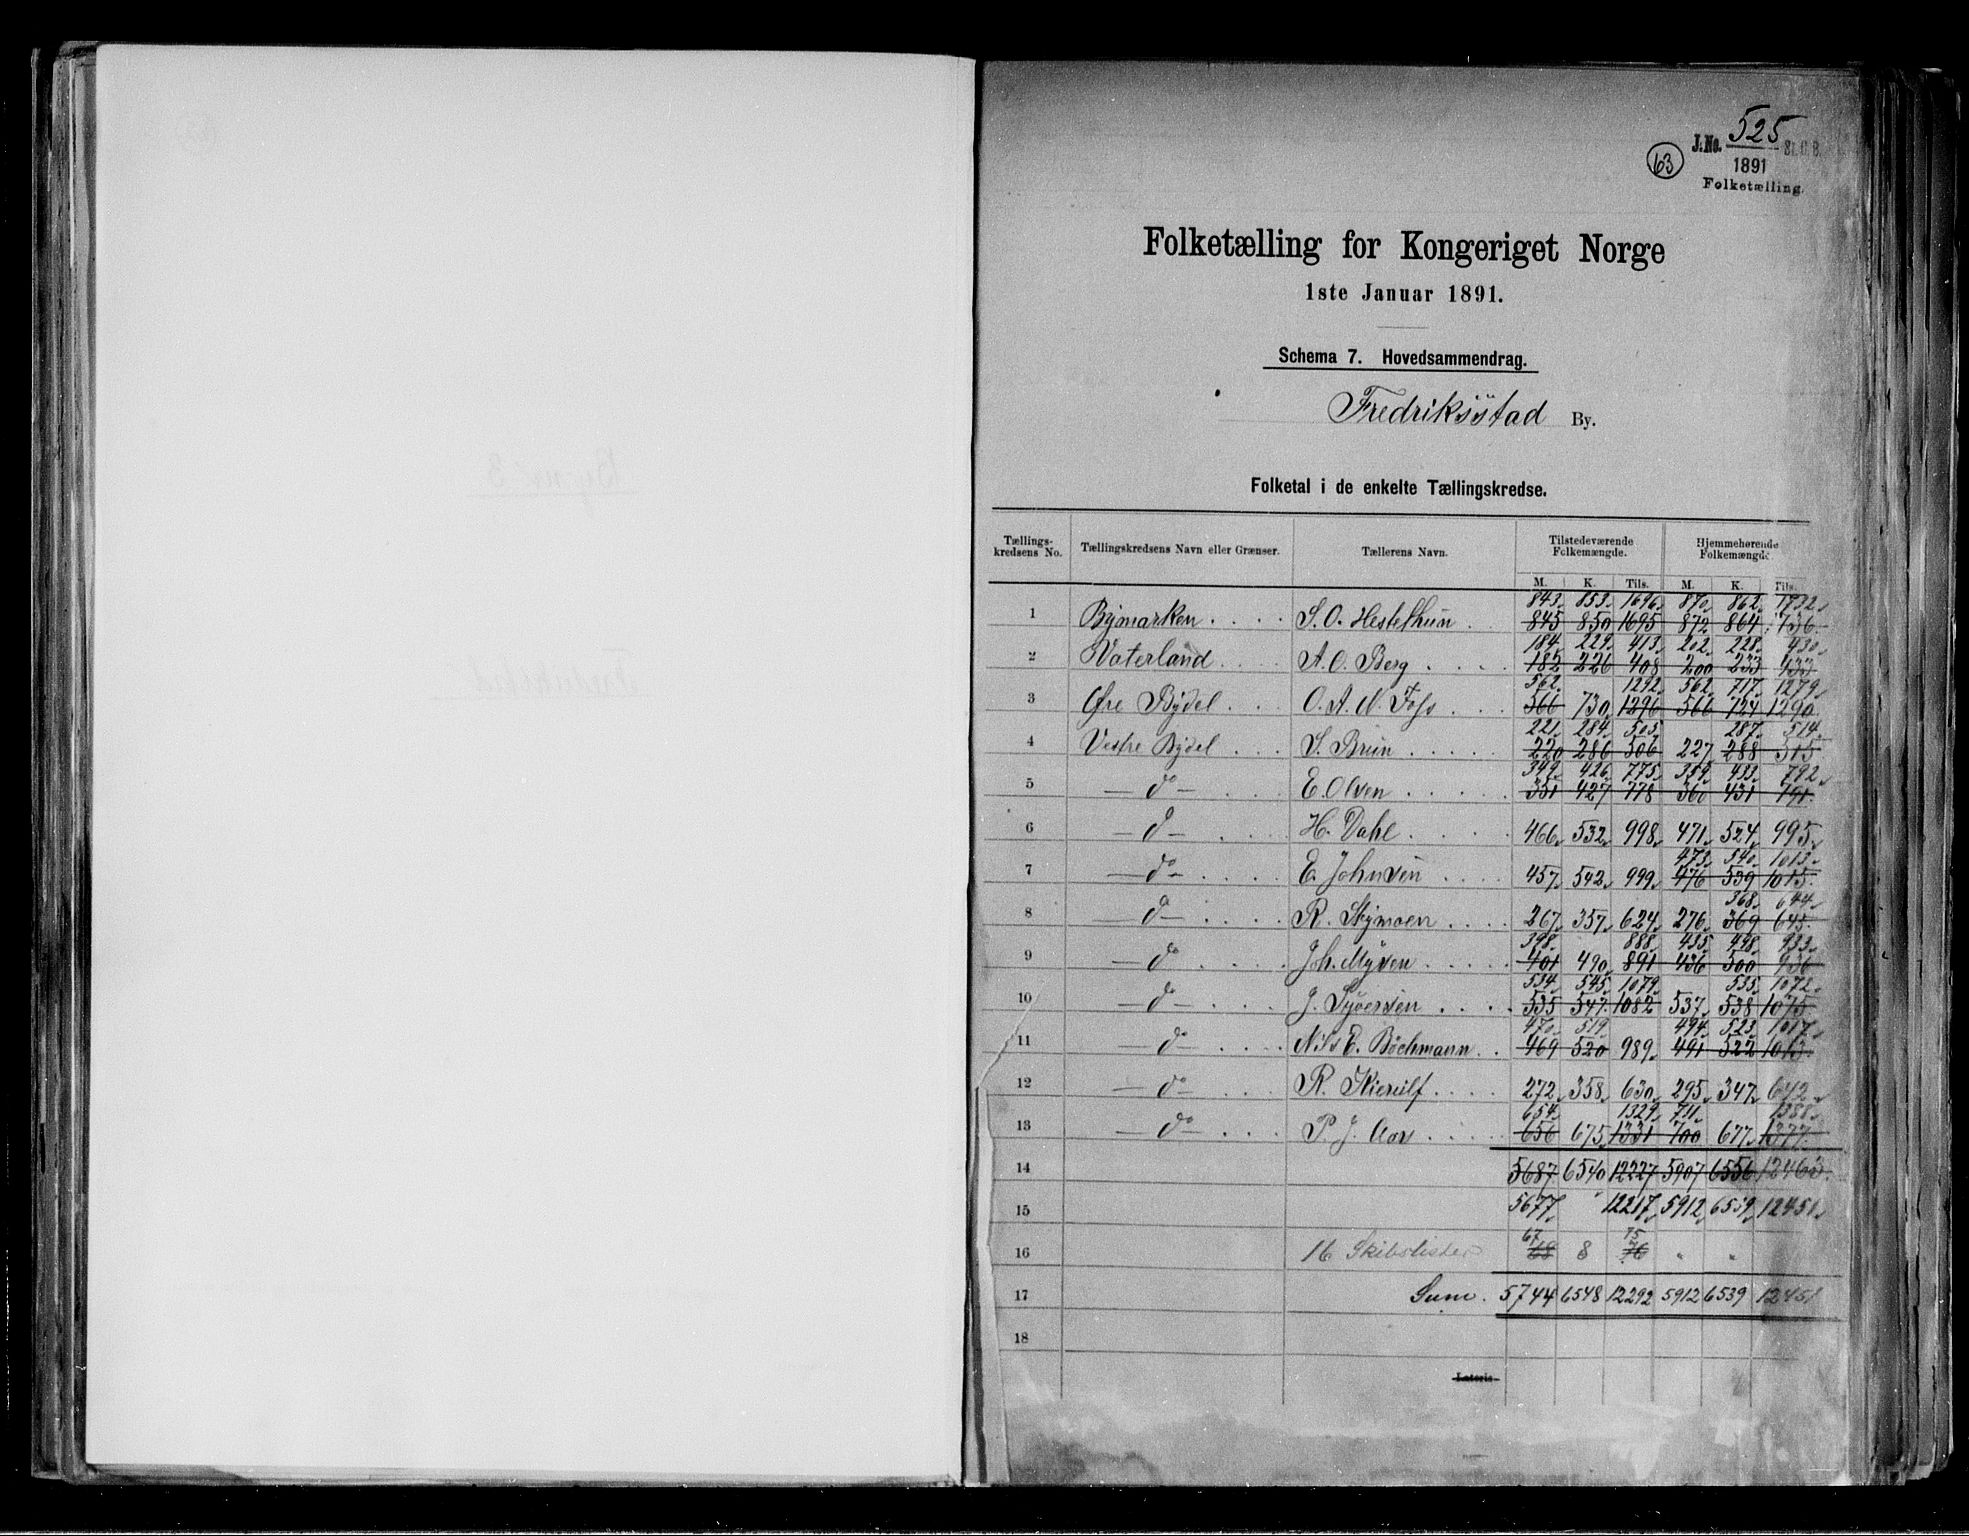 J.No. 525 St. C. B.
63
1891
Folketælling.
Folketælling for Kongeriget Norge
1ste Januar 1891.
Schema 7. Hovedsammendrag.
Fredriksstad By.
Folketal i de enkelte Tællingskredse.
Tællings-kredsens No. Tællingskredsens Navn eller Grænser. Tællerens Navn. Tilstedeværende Folkemængde. Hjemmehørende Folkemængde.
M. K. Tils. M. K. Tils.
843 853 1696 870 862 1732
1 Bymarken S. O. Hestethun 845 850 1695 872 864 1736
184 229 413 202 228 430
2 Vaterland A. O. Berg 182 226 408 200 233 433
562 1292 562 717 1279
3 Øre Bydel O. A. N. Foss 566 730 1296 566 724 1290
221 284 505 287 514
4 Vestre Bydel S. Brun 220 286 506 227 288 515
349 426 775 359 433 792
5 — do — E. Olsen 351 427 778 360 431 791
6 — do — H. Dahl 466 532 998 471 524 995
473 540 1013
7 — do — E. Johnsen 457 542 999 476 539 1015
368 644
8 — do — R. Stymoen 267 357 624 276 369 645
398 888 435 498 933
9 — do — Joh. Myren 401 490 891 436 500 936
534 545 1079 535 1072
10 — do — J. Syversen 535 547 1082 537 538 1075
470 519 494 523 1017
11 — do — Nils E. Böchmann 469 520 989 491 522 1013
12 — do — R. Kierulf 272 358 630 295 347 642
654 1329 711 1388
13 — do — P. J. Aas 656 675 1331 700 677 1377
14 5687 6540 12227 5907 6556 12463
15 5677 " 12217 5912 6539 12451
67 75
16 16 Skibslister 68 8 76 " "
17 Sum. 5744 6548 12292 5912 6539 12451
18
Lateris